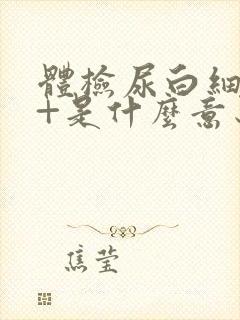 體檢尿白細
+是什麼意
焦瑩